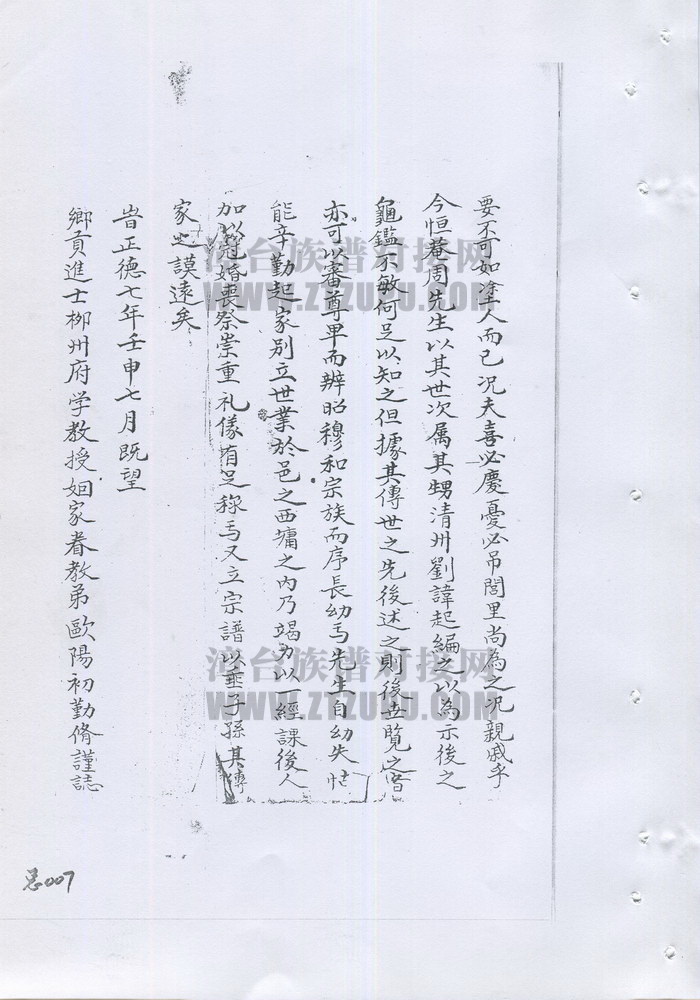 要不可如塗人而已况夫喜必慶憂必吊閭里尚為之况親戚乎
今恒菴周先生以其世次属其甥清州劉諱起編之以為示後之
龜鑑不敏何足以知之但據其傳世之先後述之則後世覽之皆
亦可以審尊卑而辨昭穆和宗族而序長幼焉先生自幼失怙
能辛勤起家别立世業於邑之西墉之内乃竭力以一經課後人
加以冠婚喪祭崇重礼儀有足稱焉又立宗譜以垂子孫其傳
家之謨遠矣
旹正德七年壬申七月既望
鄉貢進士柳州府学教授姻家眷教弟歐陽初勤脩謹誌
总007
台族谱对接网
WWW.ZTZUPU.COM
台族谱对接网
WWW.ZTZUPU.COM